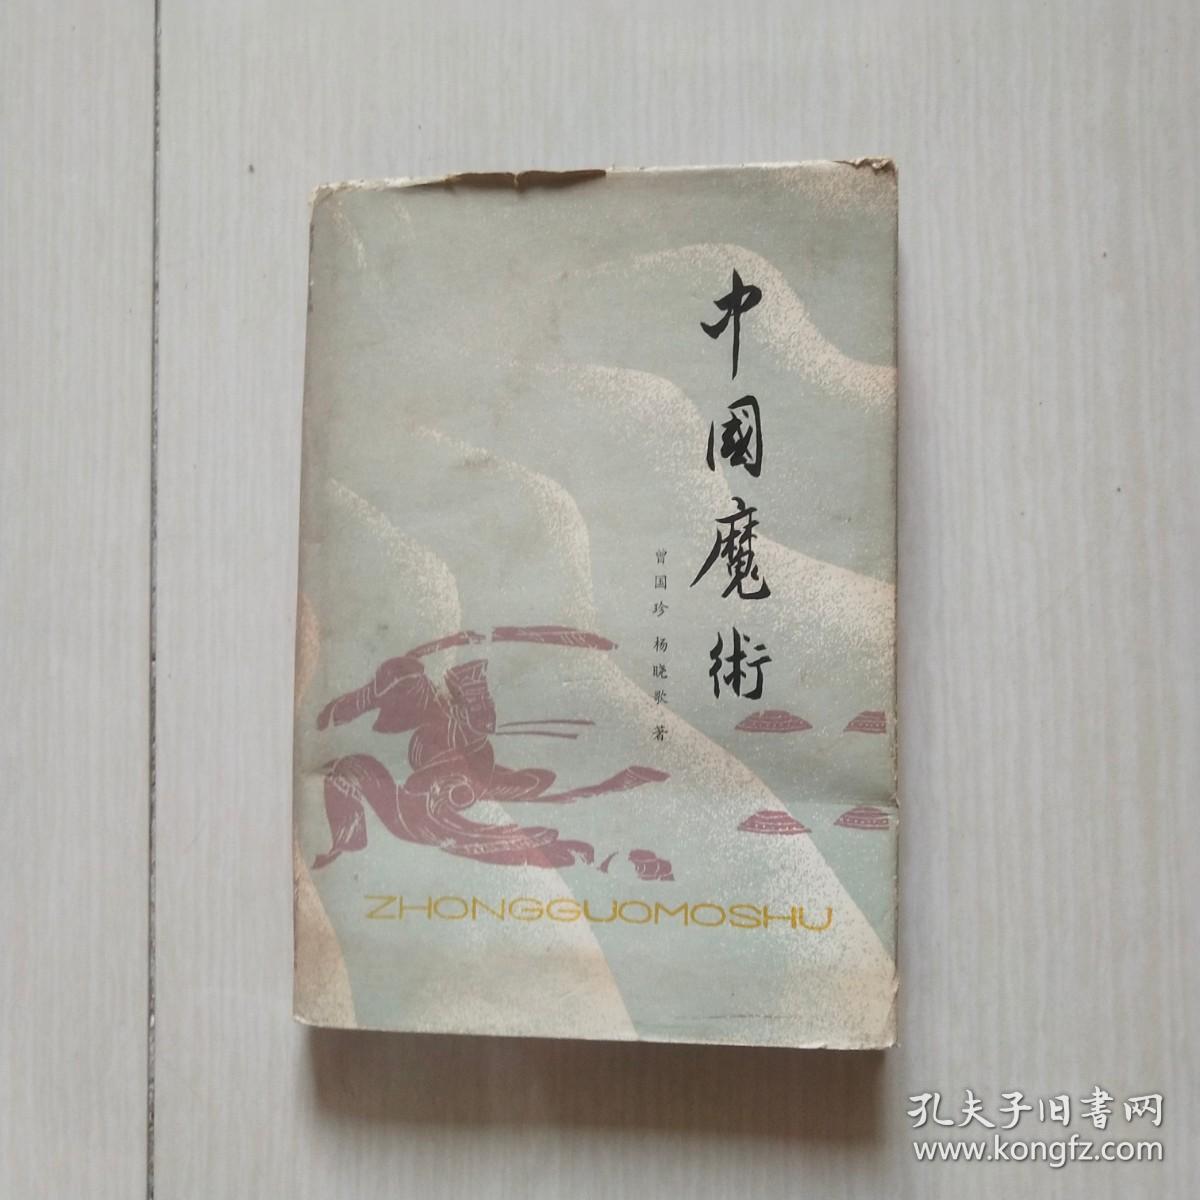 中國魔術
曾国珍 杨晓歌 著
ZHONGGUOMOSHU
孔夫子旧書网
www.kongfz.com